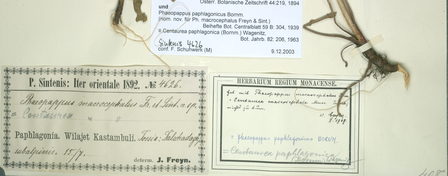 Österr. Botanische Zeitschrift 44:219, 1894
und
Phaeopappus paphlagonicus Bornm.
(nom. nov. für Ph. macrocephalus Freyn & Sint.)
Beihefte Bot. Centralbl. 59 B: 304, 1939
≡ Centaurea paphlagonica (Bornm.) Wagenitz,
Bot. Jahrb. 82: 206, 1963
Sintenis 4626
conf. F. Schuhwerk (M) 9.12.2003
P. Sintenis: Iter orientale 1892. № 4626.
Phaeopappus macrocephalus Fr. et Sint. n. sp.
= Centaurea " "
Paphlagonia. Wilajet Kastambuli. Tossia:
subalpinis. 15/7.
determ. J. Freyn.
HERBARIUM REGIUM MONACENSE.
Phaeopappus macrocephalus
Centaurea macrocephala
= Phaeopappus paphlagonicus BORNM.
= Centaurea paphlagonica